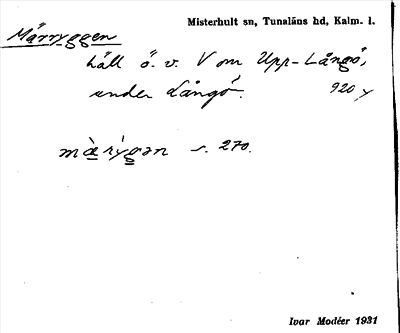 Misterhult sn, Tunaläns hd, Kalm. l.
Märryggen
häll ö. v. V om Upp-Långö,
under Långö. 920 y
mæ̀rýgən s. 270.
Ivar Modéer 1931